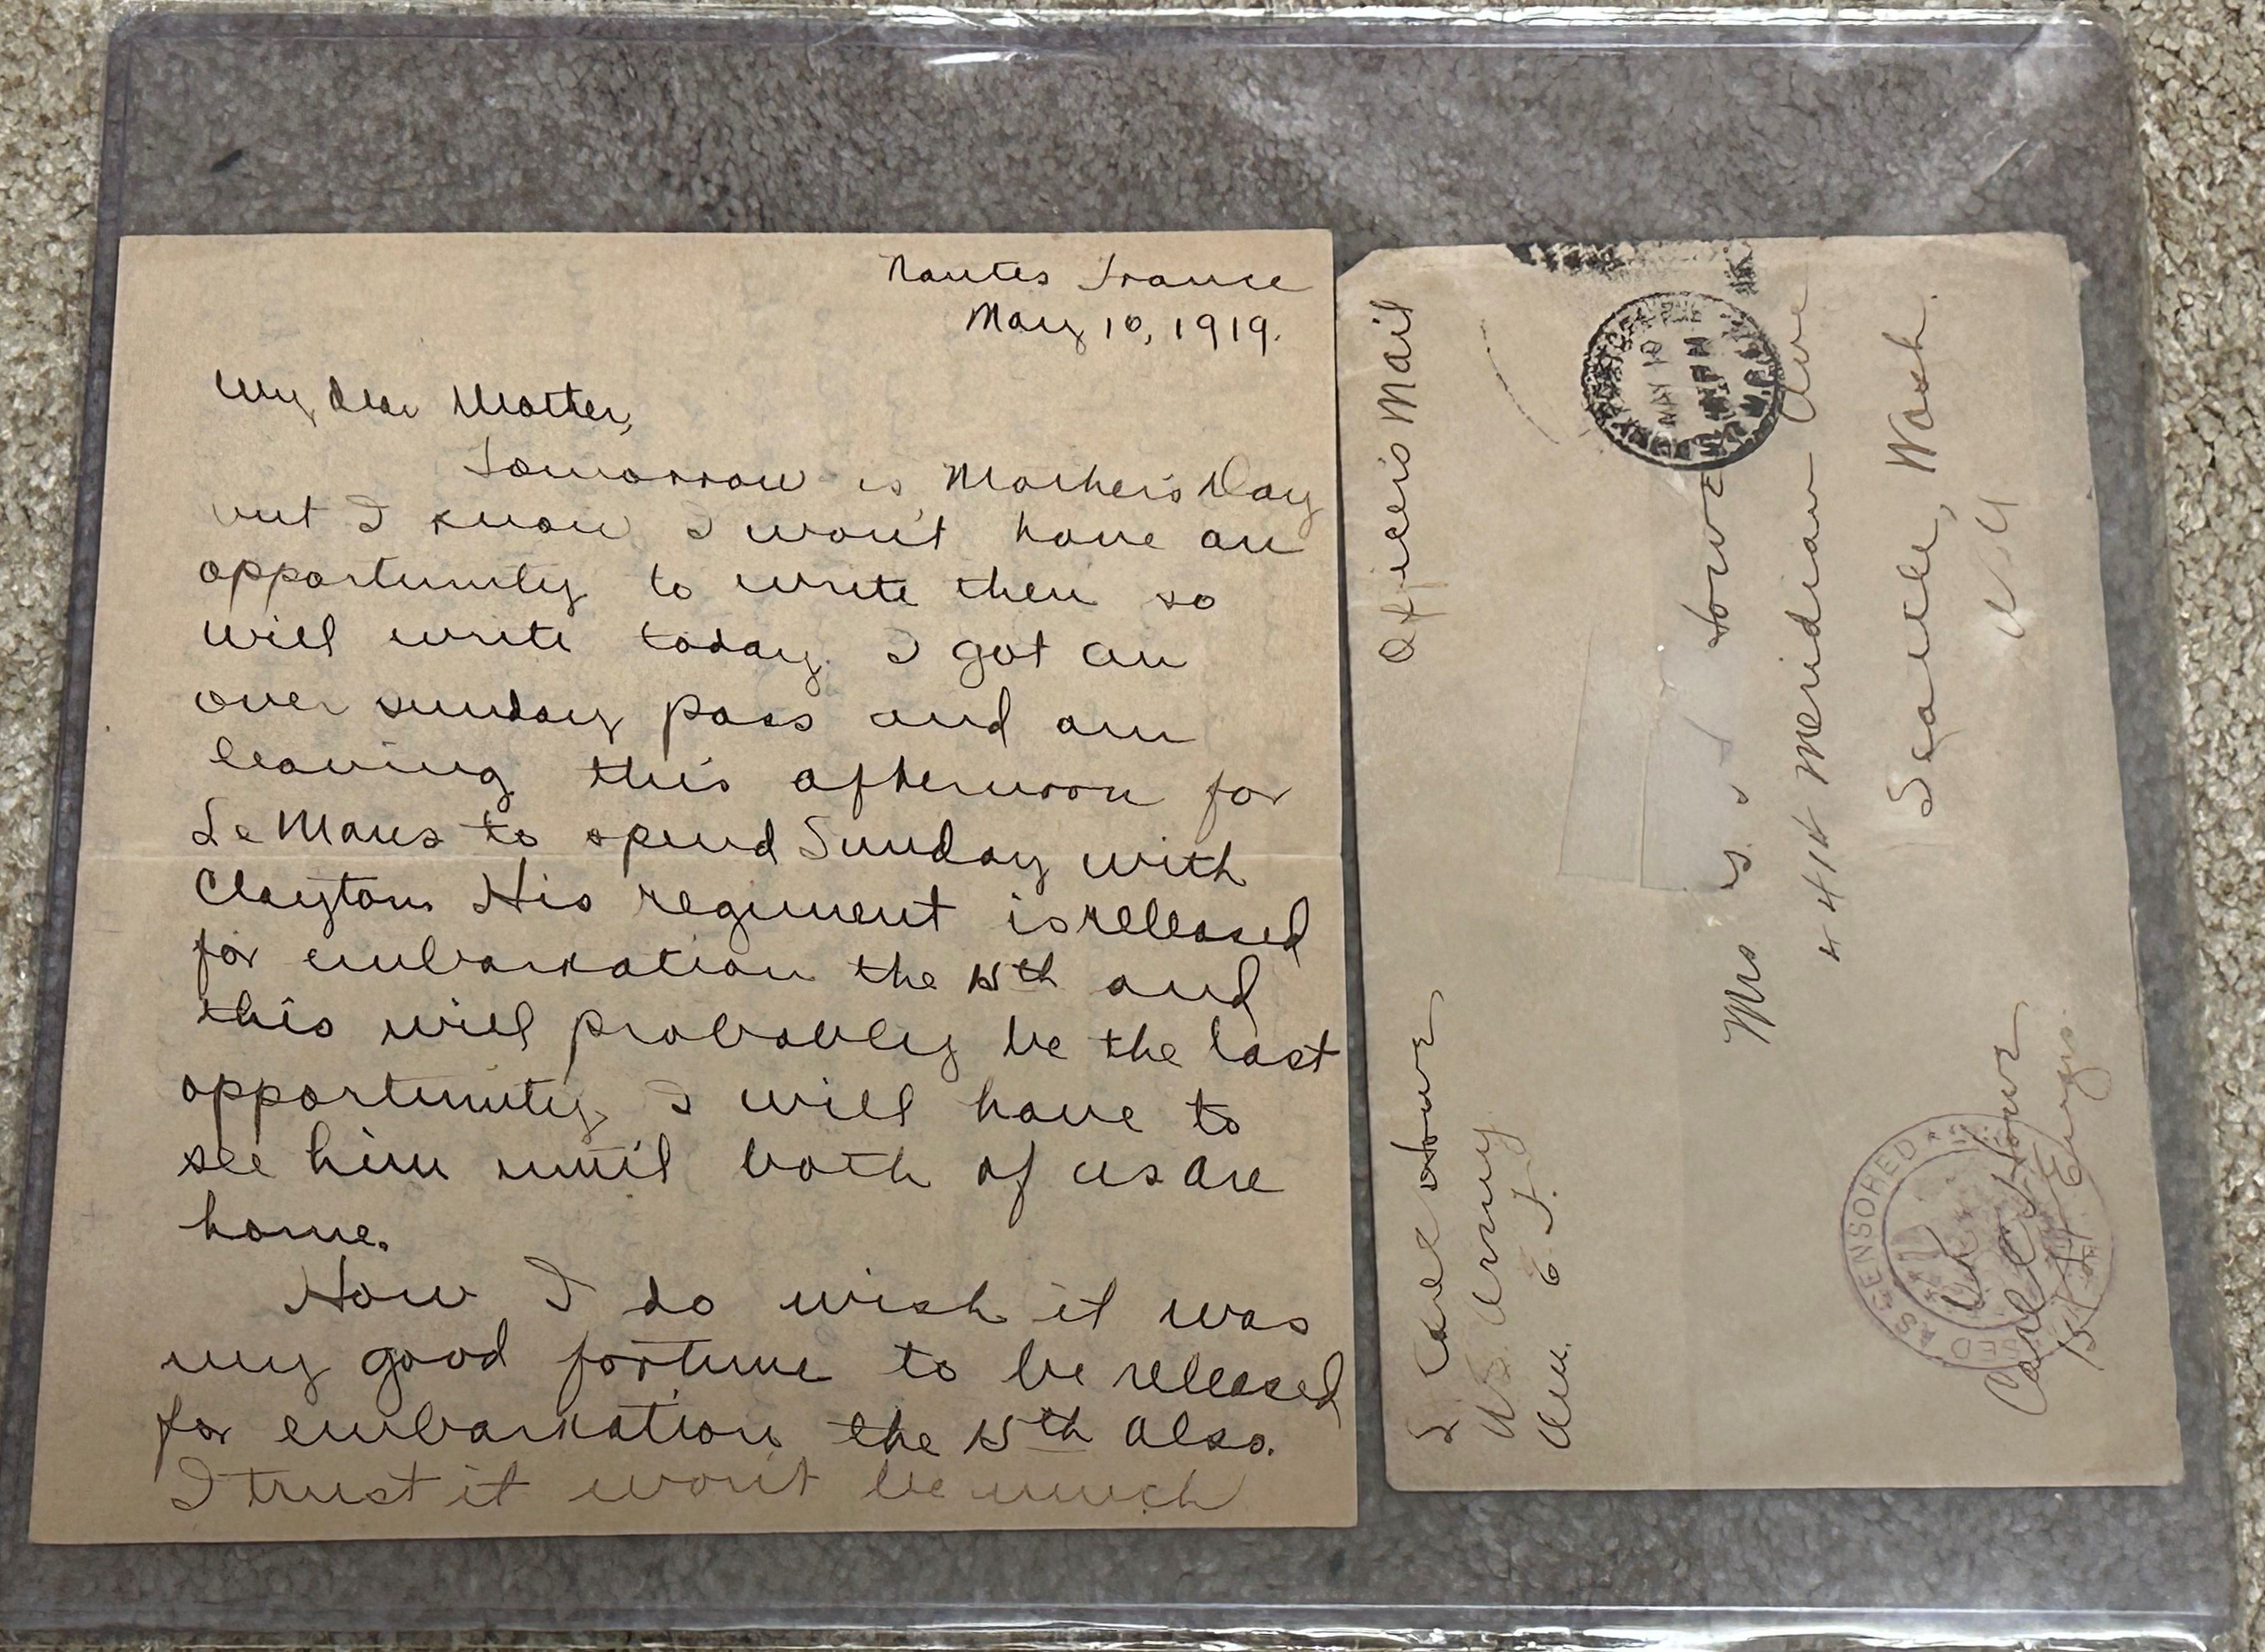 Nantes France
May 10, 1919.
My dear Mother,
Tomorrow is Mother's Day
but I know I won't have an
opportunity to write then so
will write today. I got an
over sunday pass and am
leaving this afternoon for
Le Mans to spend Sunday with
Clayton. His regiment is released
for embarkation the 15th and
this will probably be the last
opportunity I will have to
see him until both of us are
home.
How I do wish it was
my good fortune to be released
for embarkation the 15th also.
I trust it won't be much
Officers Mail
MAY 10
Mrs
Meridian Ave
Seattle, Wash.
U S A
Carl
U.S. Army
Am. E. F.
CENSORED
Carl
Engrs.